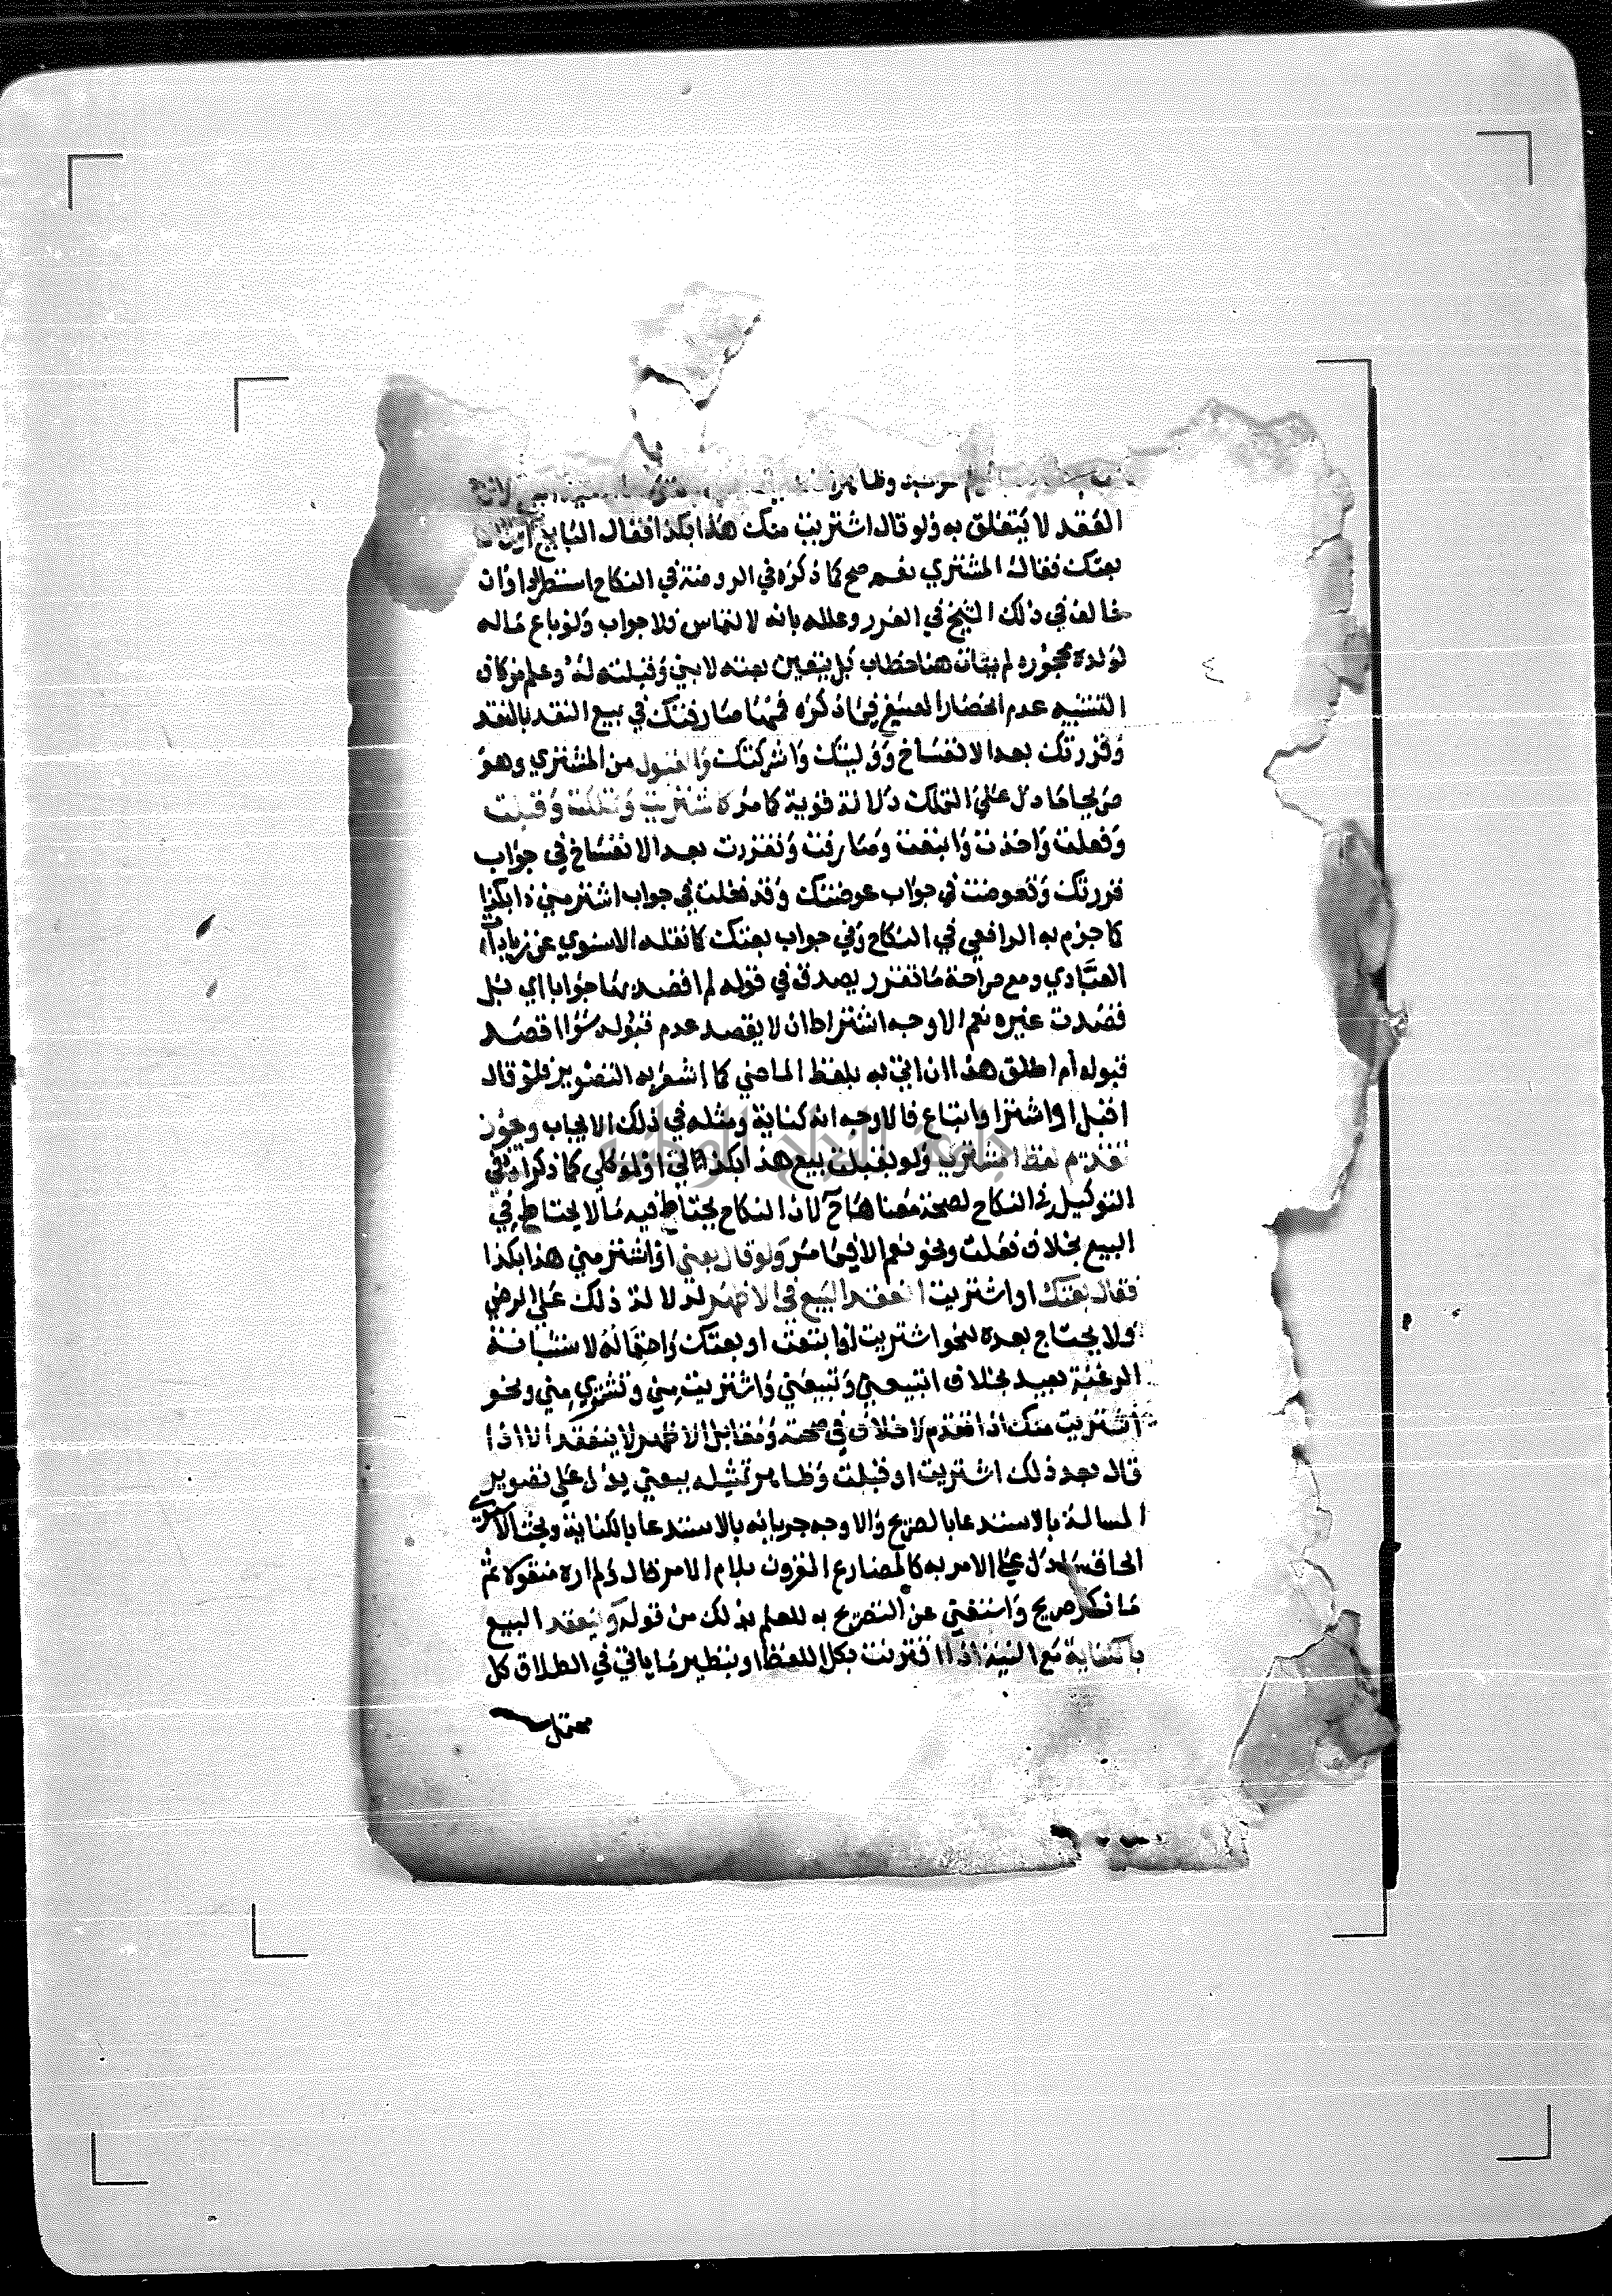 العقد لا يتعلق به ولو قال اشتريت منك هذا بكذا فقال البايع
بعتك فقال المشتري نعم صح كما ذكره في الروضة في النكاح استطرادا وان
خالف في ذلك الشيخ في الغرر وعلله بانه لا التماس فلا جواب ولو باع ماله
لولده محجوره لم يتات هنا خطاب بل يتعين بعته لابني وقبلته له وعلم من كاف
التشبيه عدم انحصار الصيغ فيما ذكره فمنها صارفتك في بيع النقد بالنقد
وقررتك بعد الانفساخ ووليتك واشركتك والقبول من المشتري وهو
صريحا ما دل على التملك دلالة قوية كما مر كاشتريت وتملكت وقبلت
وفعلت واخذت وابتعت وصارفت وتقررت بعد الانفساخ في جواب
قررتك وتعوضت في جواب عوضتك وقد فعلت في جواب اشتر مني ذا بكذا
كما جزم به الرافعي في النكاح وفي جواب بعتك كما نقله الاسنوي عن زيادات
العبادي ومع صراحة ما تقرر يصدق في قوله لم اقصد بها جوابا اي بل
قصدت غيره نعم الاوجه اشتراط ان لا يقصد عدم قبوله سوا اقصد
قبوله أم اطلق هذا ان اتي به بلفظ الماضي كما اشعر به التصوير فلو قال
اقبل او اشتر او ابتاع فالاوجه انه كناية ومثله في ذلك الايجاب ويجوز
تقدم لفظ المشتري ولو بقبلت بيع هذا بكذا لي او لموكلي كما ذكراه في
التوكيل في النكاح لصحة معناها ح لاذا النكاح يحتاط فيه ما لا يحتاط في
البيع بخلاف فعلت ونحو نعم الا فيما مر ولو قال بعني او اشتر مني هذا بكذا
فقال بعتك او اشتريت انعقد البيع في الاظهر لدلالة ذلك على الرضى
ولا يحتاج بعده لنحو اشتريت او ابتعت او بعتك واحتماله لاستبانة
الرغبة بعيد بخلاف اتبيعني وتبيعني واشتريت مني وتشتري مني ونحو
اشتريت منك اذا تقدم لا خلاف في صحته ومقابل الاظهر لا ينعقد الا اذا
قال بعد ذلك اشتريت او قبلت وظاهر تمثيله ببعني يدل على تصوير
المسالة بالاستدعا بالصريح والاوجه جريانه بالاستدعا بالكناية وبحث الاسنوي
الحاق ما دل على الامر به كالمضارع المقرون بلام الامر قال ولم اره منقولا ثم
ما ذكر صريح واستغني عن التصريح به للعلم بذلك من قوله وينعقد البيع
بالكناية مع النية اذا اقترنت بكل اللفظ او بنظير ما ياتي في الطلاق كل
محتمل